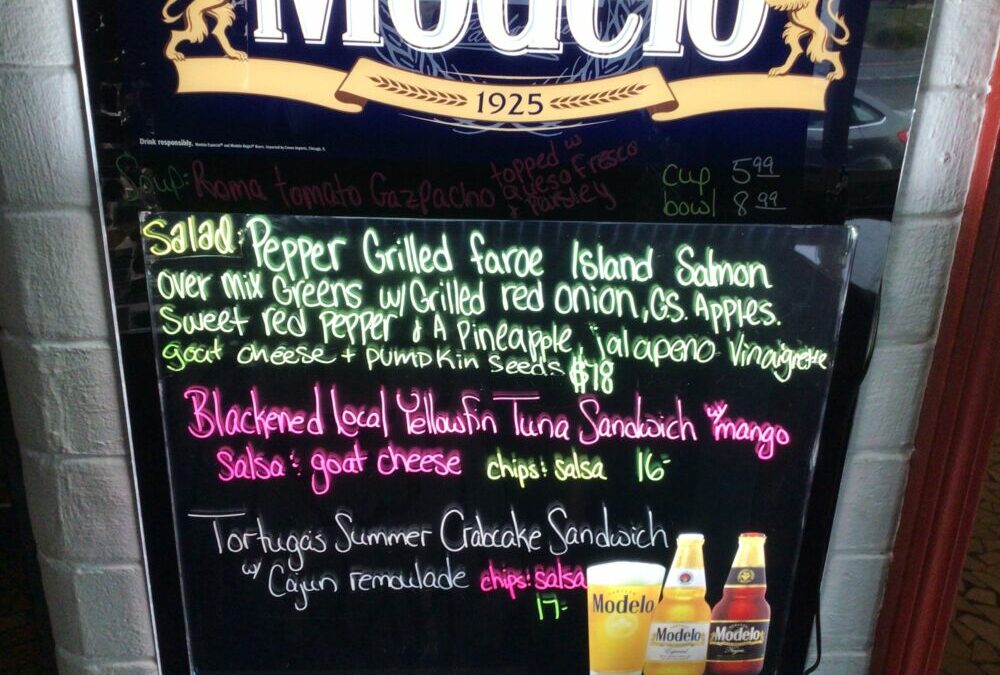 Modelo
1925
Drink responsibly.
Soup: Roma tomato Gazpacho topped w Queso Fresco & Parsley
cup 5.99
bowl 8.99
Salad: Pepper Grilled faroe Island Salmon
over mix Greens w/ Grilled red onion, G.S. Apples.
Sweet red pepper & A Pineapple, jalapeno Vinaigrette
goat cheese + pumpkin seeds $18
Blackened Local Yellowfin Tuna Sandwich w/ mango
Salsa & goat cheese chips & salsa 16-
Tortugas Summer Crabcake Sandwich
w/ Cajun remoulade chips & salsa
17-
Modelo
Modelo
Especial
Modelo
Negra